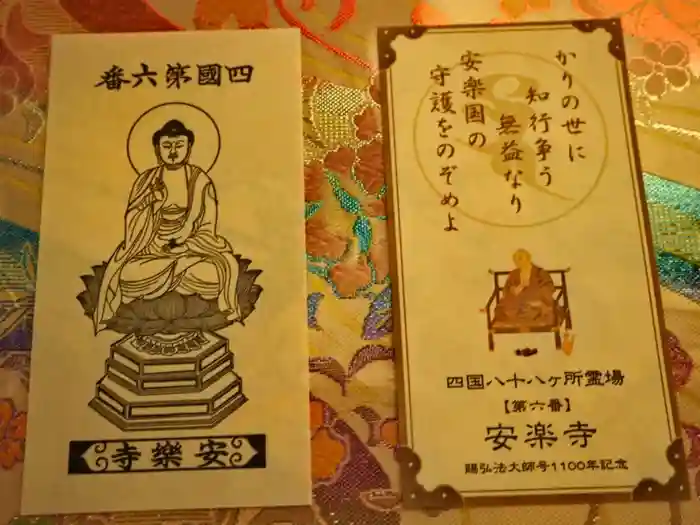 四國第六番
安樂寺
かりの世に
知行争う
無益なり
安楽国の
守護をのぞめよ
四国八十八ヶ所霊場
【第六番】
安楽寺
賜弘法大師号1100年記念